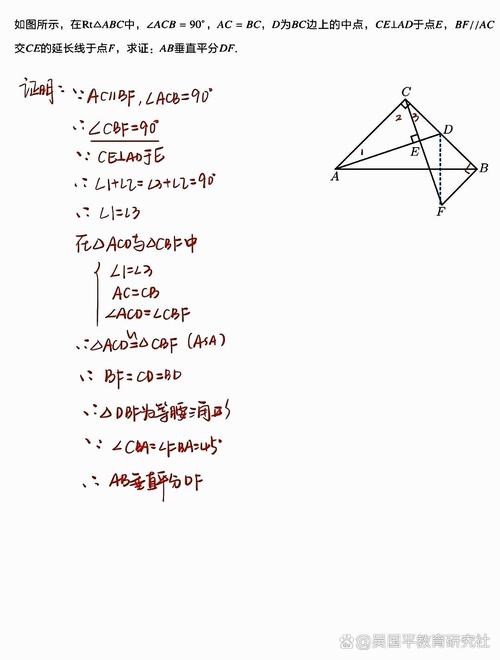 如图所示，在Rt△ABC中，∠ACB = 90°，AC = BC，D为BC边上的中点，CE⊥AD于点E，BF//AC
交CE的延长线于点F，求证：AB垂直平分DF.
证明：∵AC∥BF，∠ACB=90°
∴∠CBF=90°
∵ CE⊥AD于E
∴ ∠1+∠2=∠3+∠2=90°
∴ ∠1=∠3
在△ACD与△CBF中
∠1=∠3
AC=CB
∠ACD=∠CBF
∴△ACD≌△CBF (ASA)
∴ BF=CD=BD
∴△DBF为等腰三角形
∵ ∠CBA=∠FBA=45°
∴ AB垂直平分DF
C
2 3
D
1
E
A
B
F
吴国平教育研究社